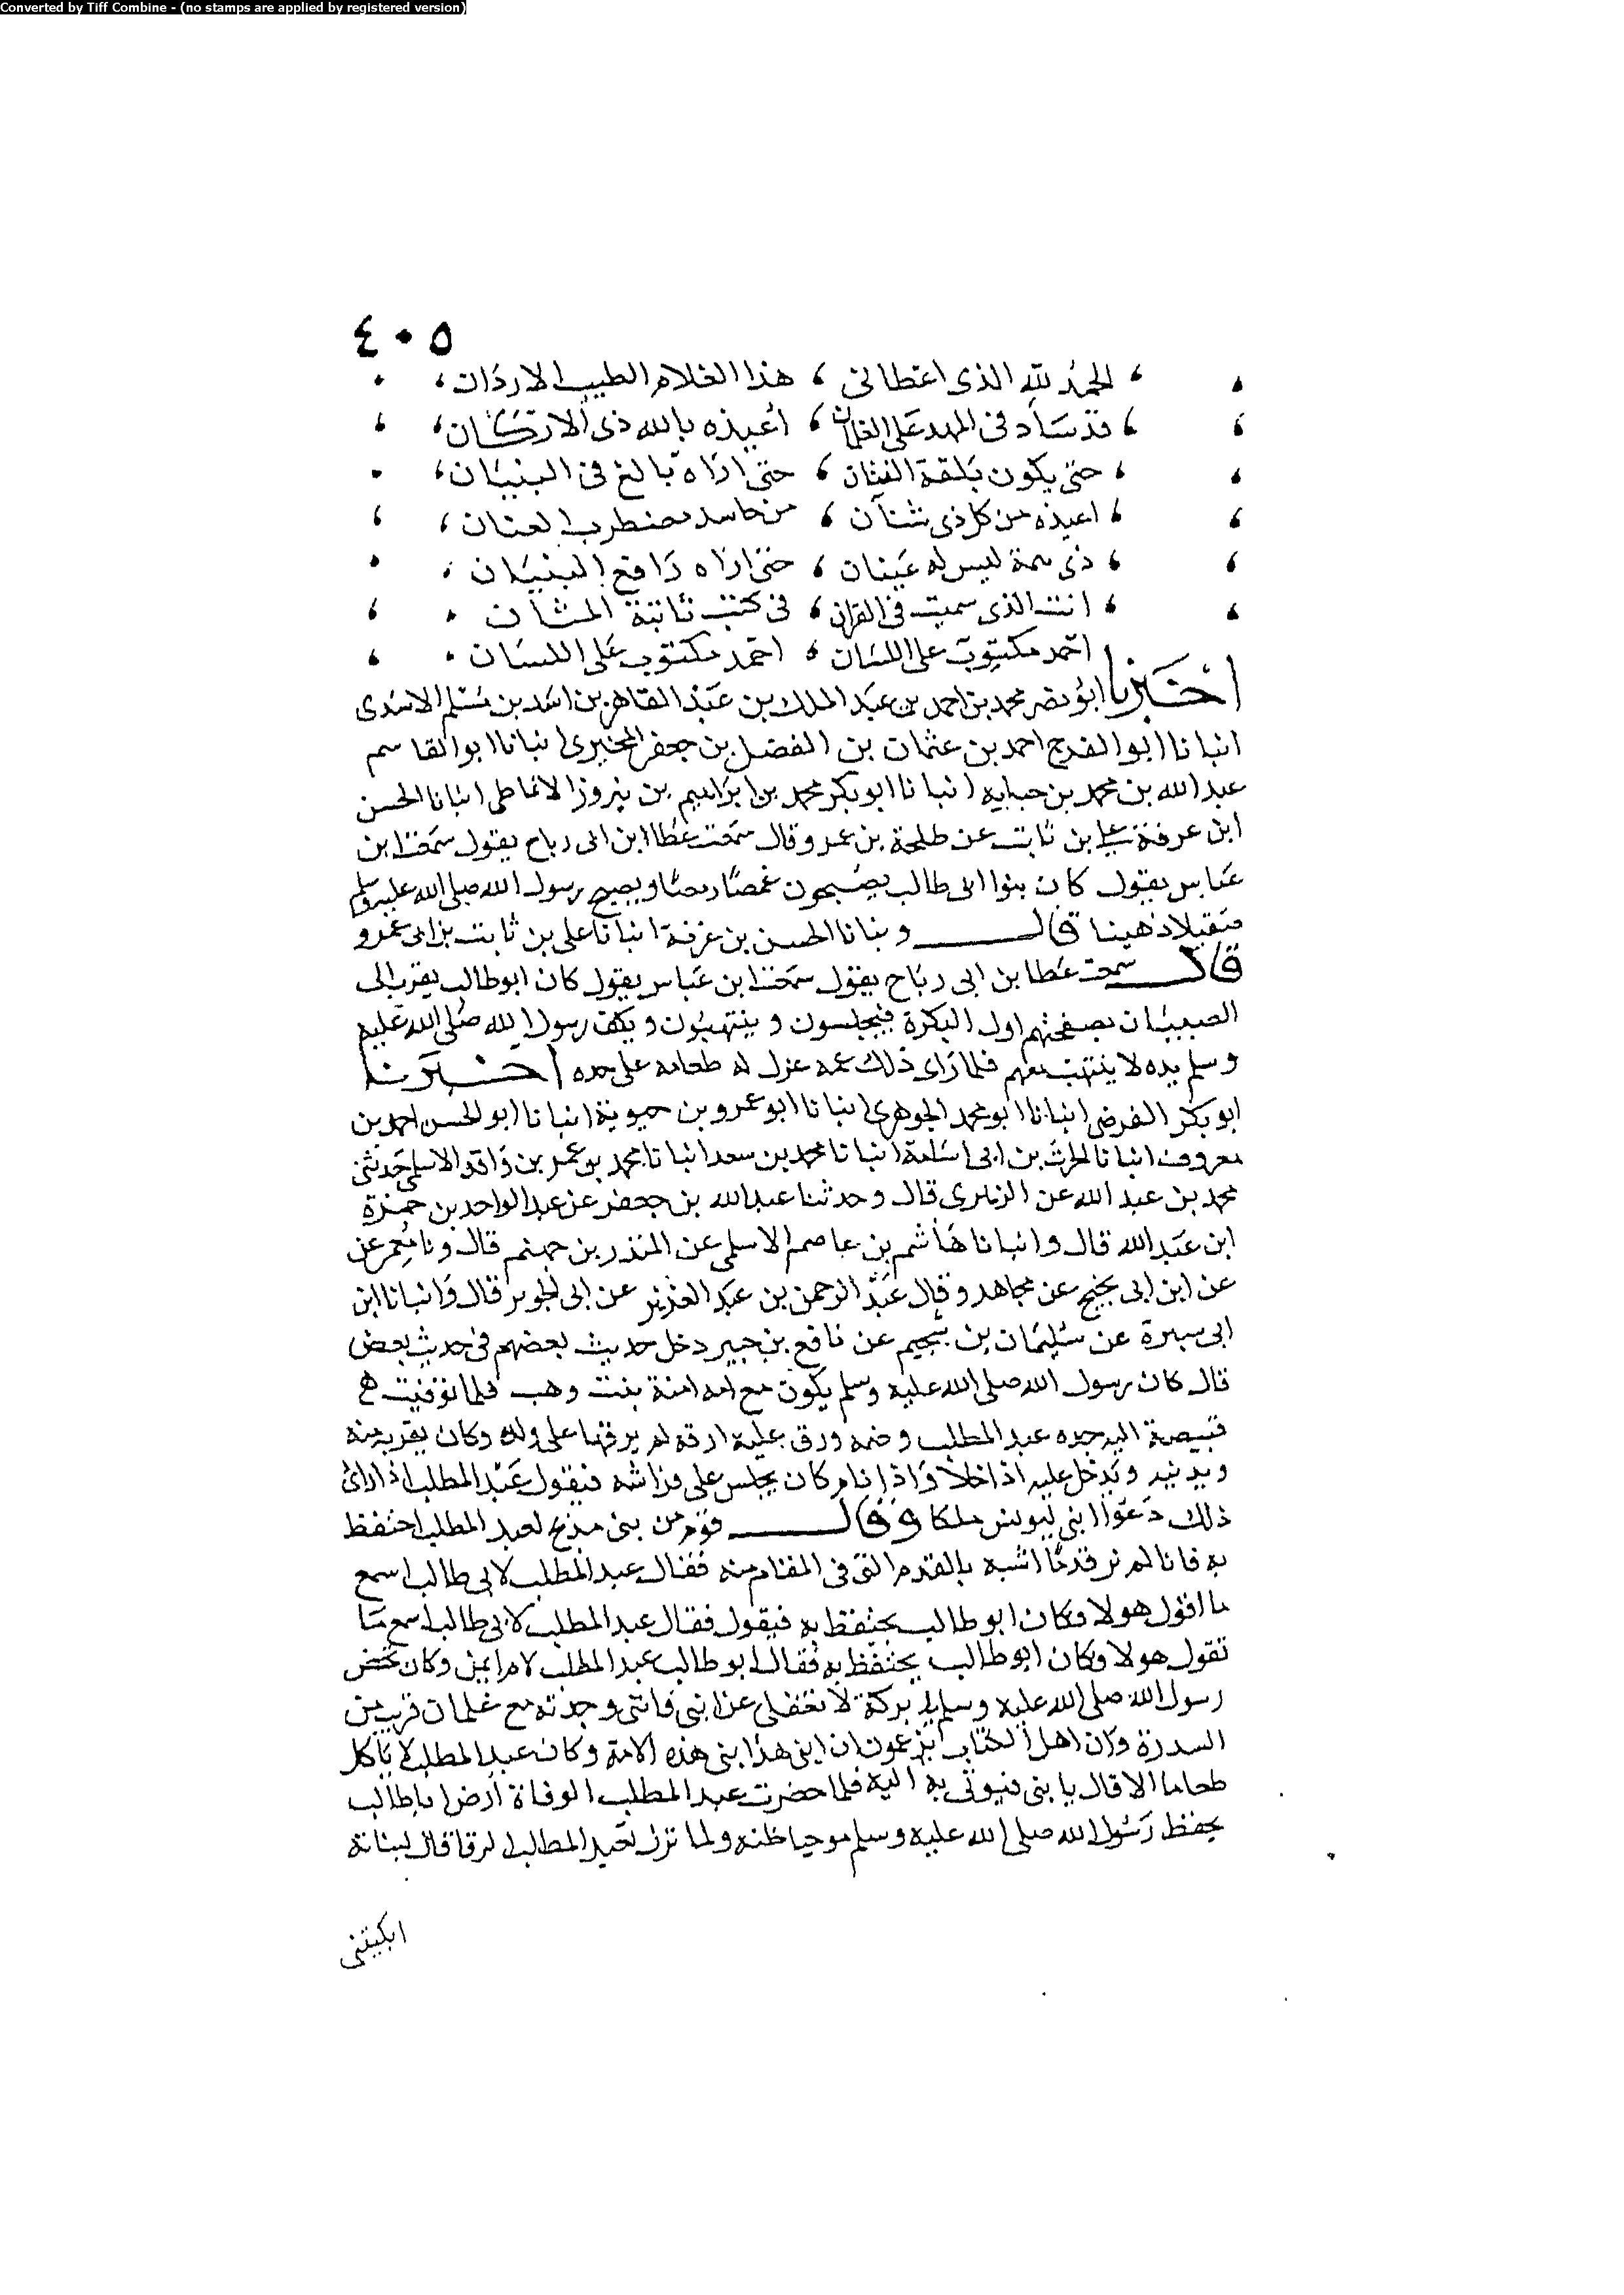 Converted by Tiff Combine - (no stamps are applied by registered version)
٤٠٥
الحمد لله الذى اعطانى ، هذا الغلام الطيب الاردان ،
قد ساد فى المهد على الغلمان ، أعيذه بالله ذى الاركان ،
حتى يكون بلغة الفتيان ، حتى اراه بالغ فى البنيان ،
اعيذه من كل ذى شنآن ، من حاسد مضطرب العنان ،
ذى همة ليس له عينان ، حتى اراه رافع البنيان ،
انت الذى سميت فى القران ، فى كتب ثابتة المثان
احمد مكتوب على اللسان ، احمد مكتوب على اللسان
اخبرنا ابو نصر محمد بن احمد بن عبد الملك بن عبد القاهر بن اسد بن مسلم الاسدى
انبانا ابو الفرج احمد بن عثمان بن الفضل بن جعفر المخبرى انبانا ابو القاسم
عبد الله بن محمد بن حبابه انبانا ابو بكر محمد بن ابراهيم بن نيروز الانماطى انبانا الحسن
ابن عرفة على بن ثابت عن طلحة بن عمرو قال سمعت عطا ابن ابى رباح يقول سمعت ابن
عباس يقول كان بنوا ابى طالب يصبحون غمصا رمصا ويصبح رسول الله صلى الله عليه وسلم
صقيلا دهينا قال وبنانا الحسن بن عرفة انبانا على بن ثابت بن ابى عمرو
قال سمعت عطا بن ابى رباح يقول سمعت ابن عباس يقول كان ابو طالب يقرب الى
الصبيان بصفحتهم اول البكرة فيجلسون وينتهبون ويكف رسول الله صلى الله عليه
وسلم يده لا ينتهب معهم فلما راى ذلك عمه عزل له طعامه على حده اخبرنا
ابو بكر الفرضى انبانا ابو محمد الجوهرى انبانا ابو عمرو بن حيوية انبانا ابو الحسن احمد بن
معروف انبانا الحرث بن ابى اسامة انبانا محمد بن سعد انبانا محمد بن عمر بن واقد الاسلمى حدثنى
محمد بن عبد الله عن الزهرى قال وحدثنا عبد الله بن جعفر عن عبد الواحد بن حمزة
ابن عبد الله قال وانبانا هاشم بن عاصم الاسلمى عن المنذر بن جهم قال ونا معمر عن
عن ابن ابى نجيح عن مجاهد وقال عبد الرحمن بن عبد العزيز عن ابى الحويرث قال وانبانا ابن
ابى سبرة عن سليمان بن سحيم عن نافع بن جبير دخل حديث بعضهم فى حديث بعض
قال كان رسول الله صلى الله عليه وسلم يكون مع امه امنة بنت وهب فلما توفيت
قبيصة اليه جده عبد المطلب وضمه ورق عليه ارقه لم يرقها على ولده وكان يقربه منه
ويدنيه ويدخل عليه اذا خلا واذا نام كان يجلس على فراشه فيقول عبد المطلب اذا راى
ذلك دعوا ابنى ليونس ملكا وقال قوم من بنى مدلج لعبد المطلب احتفظ
به فانا لم نر قدما اشبه بالقدم التى فى المقام منه فقال عبد المطلب لابى طالب اسمع
ما اقول هولا وكان ابو طالب يحتفظ به فيقول فقال عبد المطلب لابى طالب اسمع ما
تقول هولا وكان ابو طالب يحتفظ به فقال ابو طالب عبد المطلب لام ايمن وكان تحضن
رسول الله صلى الله عليه وسلم يا بركة لا تغفلى عن ابنى فاننى وجدته مع غلمان قريب من
السدرة وان اهل الكتاب يزعمون ان ابنى هذا بنى هذه الامة وكان عبد المطلب لا ياكل
طعاما الا قال يا بنى فيوتى به اليه فلما حضرت عبد المطلب الوفاة ارض ابا طالب
بحفظ رسول الله صلى الله عليه وسلم وحياطته ولما نزل بعبد المطالب قال لبناته
ابكيننى